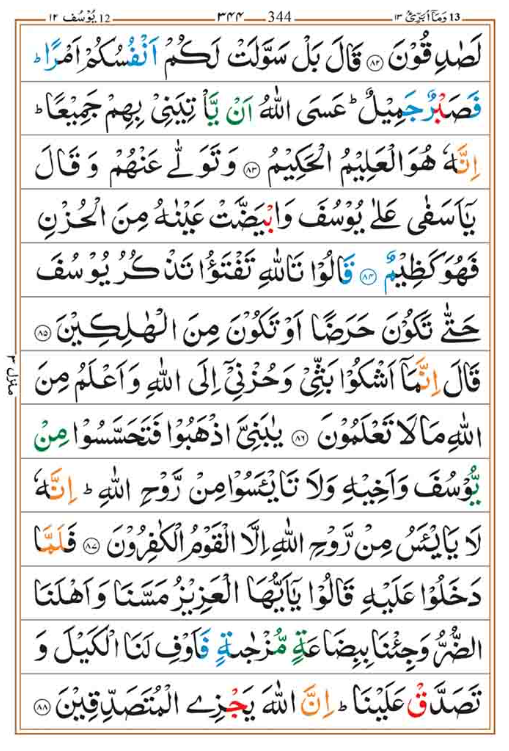 12 يُوْسُف ١٢ ٣٤٤ 344 13 وَمَاۤ اُبَرِّئُ ١٣
لَصٰدِقُوْنَ ﴿٨٢﴾ قَالَ بَلْ سَوَّلَتْ لَكُمْ اَنْفُسُكُمْ اَمْرًا ؕ
فَصَبْرٌ جَمِيْلٌ ؕ عَسَى اللّٰهُ اَنْ يَّاْتِيَنِيْ بِهِمْ جَمِيْعًا ؕ
اِنَّهٗ هُوَ الْعَلِيْمُ الْحَكِيْمُ ﴿٨٣﴾ وَتَوَلّٰى عَنْهُمْ وَ قَالَ
يٰۤاَسَفٰى عَلٰى يُوْسُفَ وَابْيَضَّتْ عَيْنٰهُ مِنَ الْحُزْنِ
فَهُوَ كَظِيْمٌ ﴿٨٤﴾ قَالُوْا تَاللّٰهِ تَفْتَؤُا تَذْكُرُ يُوْسُفَ
حَتّٰى تَكُوْنَ حَرَضًا اَوْ تَكُوْنَ مِنَ الْهٰلِكِيْنَ ﴿٨٥﴾
قَالَ اِنَّمَاۤ اَشْكُوْا بَثِّيْ وَحُزْنِيْۤ اِلَى اللّٰهِ وَاَعْلَمُ مِنَ
اللّٰهِ مَا لَا تَعْلَمُوْنَ ﴿٨٦﴾ يٰبَنِيَّ اذْهَبُوْا فَتَحَسَّسُوْا مِنْ
يُّوْسُفَ وَاَخِيْهِ وَلَا تَايْـَٔسُوْا مِنْ رَّوْحِ اللّٰهِ ؕ اِنَّهٗ
لَا يَايْـَٔسُ مِنْ رَّوْحِ اللّٰهِ اِلَّا الْقَوْمُ الْكٰفِرُوْنَ ﴿٨٧﴾ فَلَمَّا
دَخَلُوْا عَلَيْهِ قَالُوْا يٰۤاَيُّهَا الْعَزِيْزُ مَسَّنَا وَاَهْلَنَا
الضُّرُّ وَجِئْنَا بِبِضَاعَةٍ مُّزْجٰىةٍ فَاَوْفِ لَنَا الْكَيْلَ وَ
تَصَدَّقْ عَلَيْنَا ؕ اِنَّ اللّٰهَ يَجْزِي الْمُتَصَدِّقِيْنَ ﴿٨٨﴾
منزل ٣